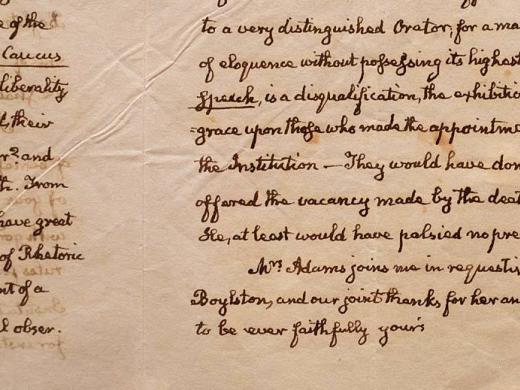 e of the
Caucus
liberality
their
and
th. From
have great
of Rhetoric
nt of a
l obser.
to a very distinguished Orator; for a ma
of eloquence without possessing its highest
Speech, is a disqualification, the exhibitio
=grace upon those who made the appointme
the Institution — They would have don
offered the vacancy made by the deat
He, at least would have palsied no pre
Mrs Adams joins me in requestin
Boylston, and our joint thanks for her an
to be ever faithfully yours